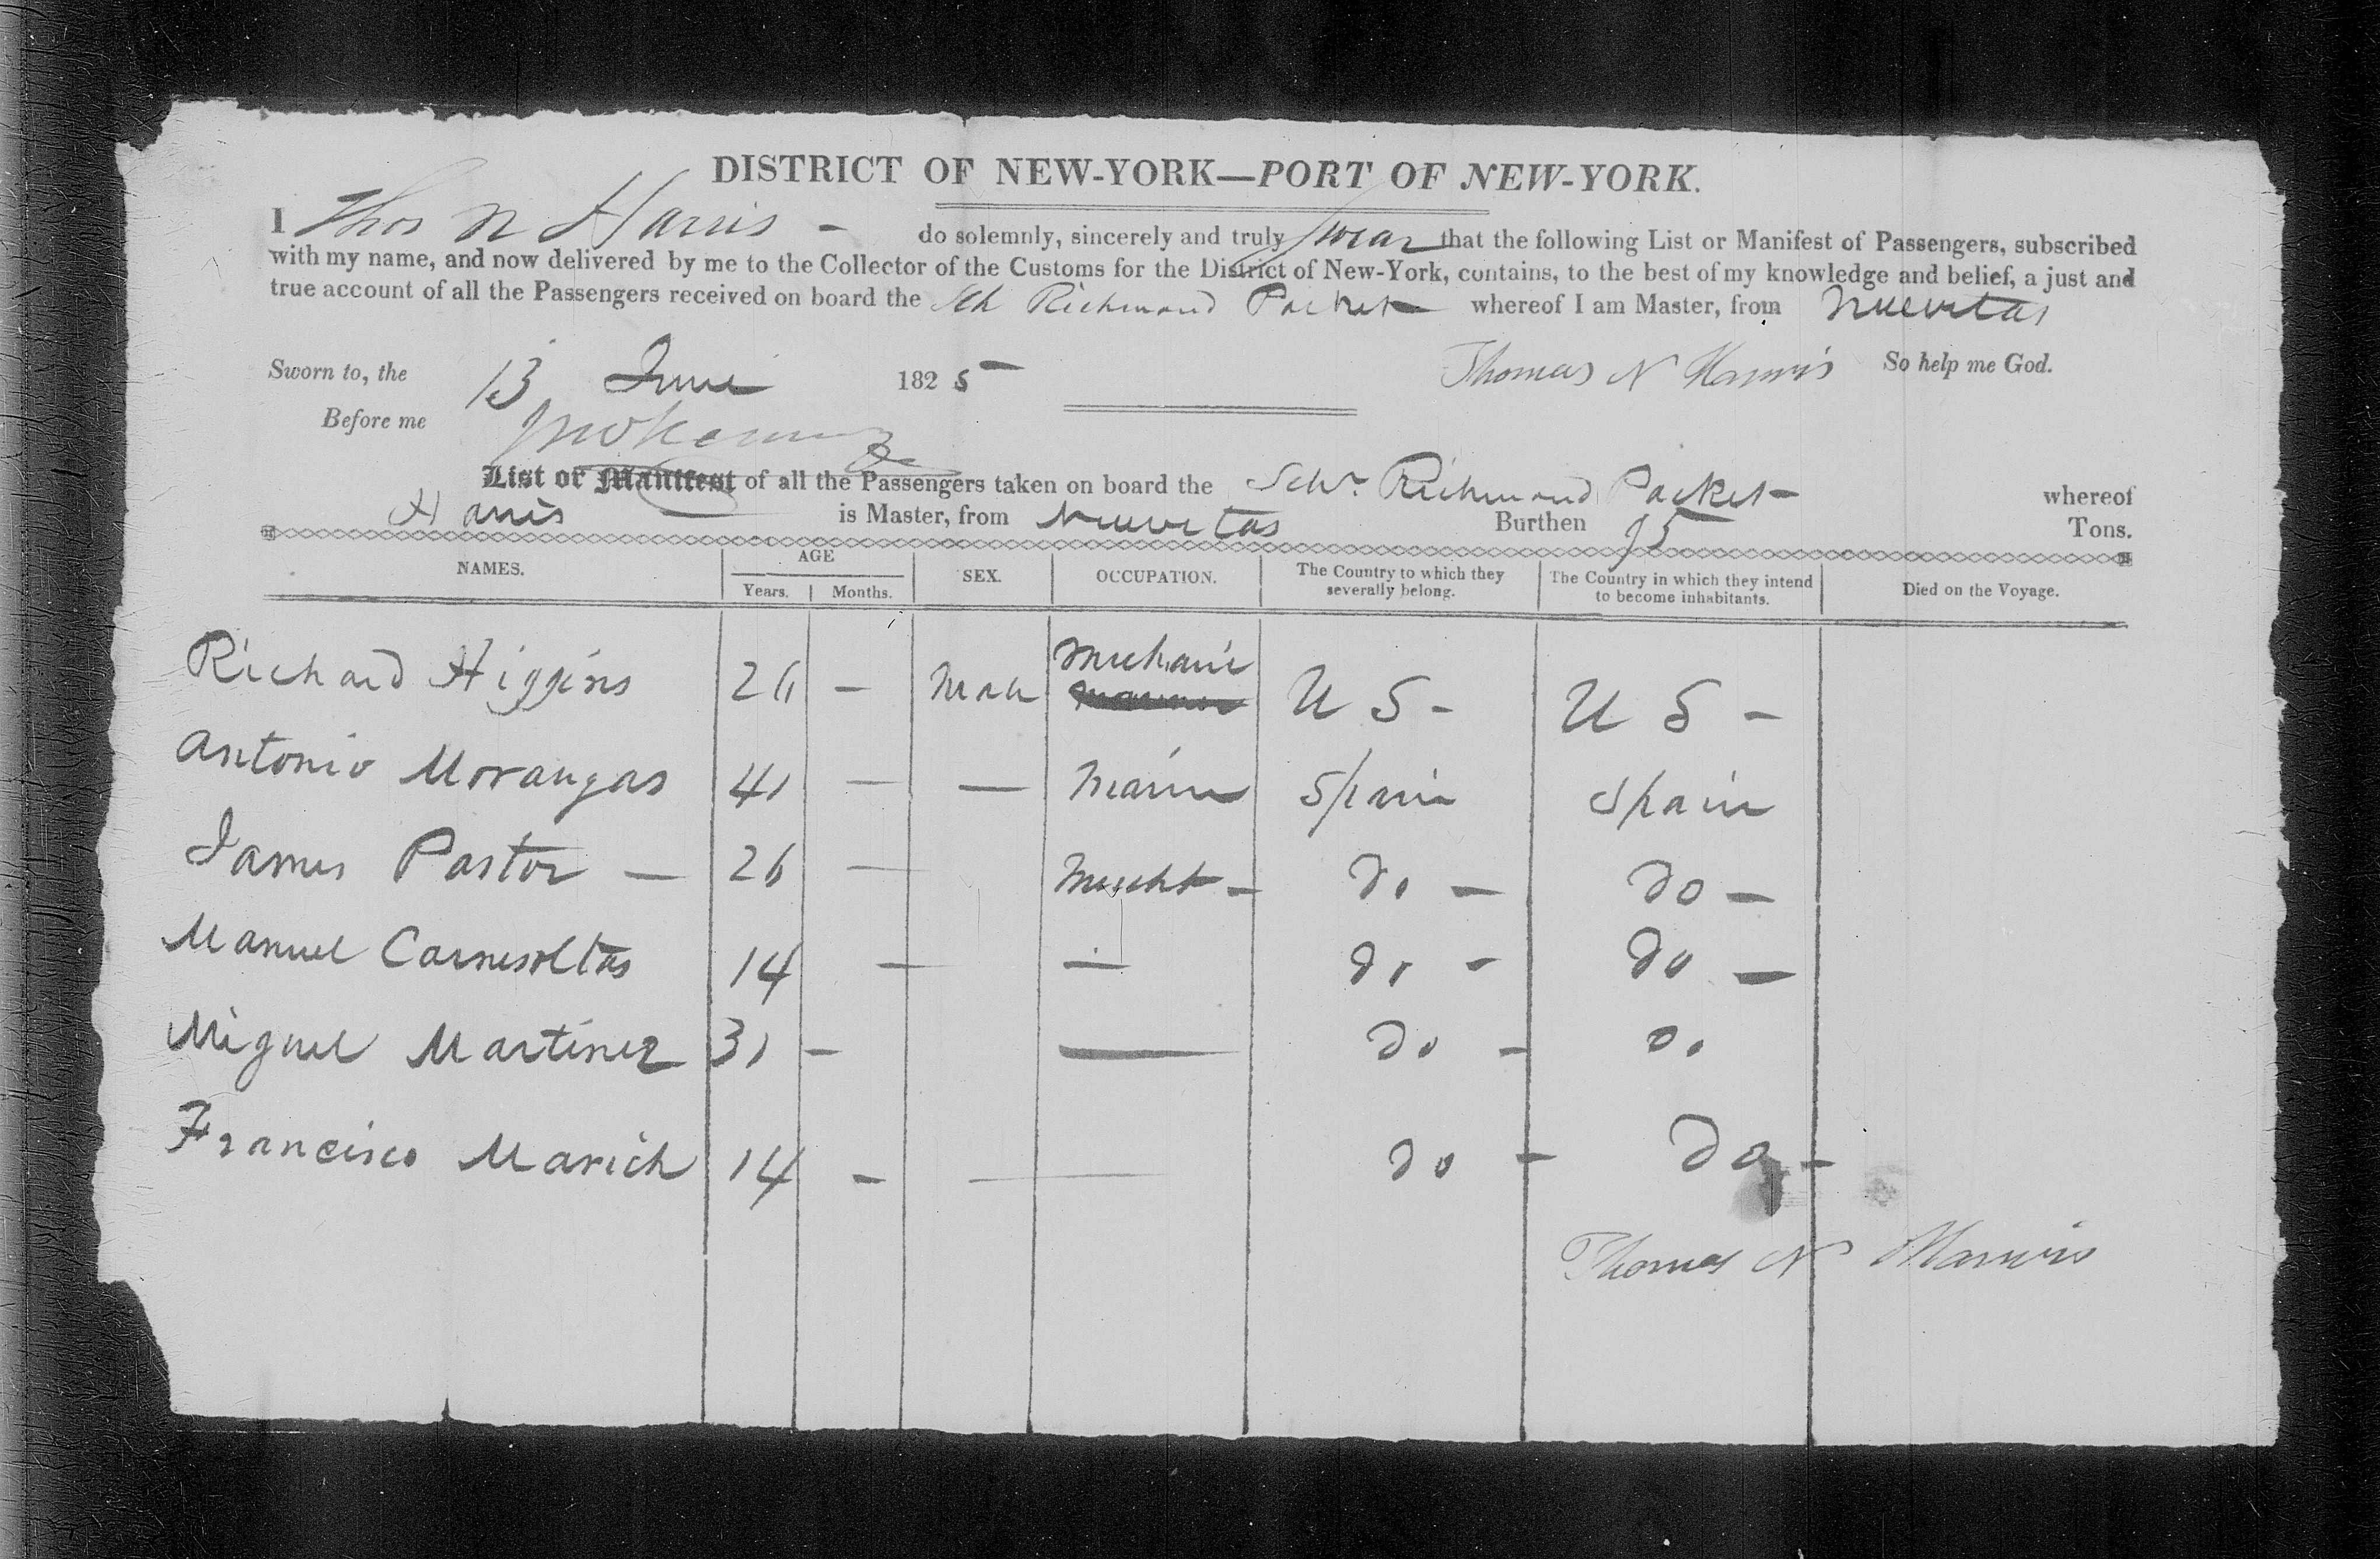 DISTRICT OF NEW-YORK—PORT OF NEW-YORK.
I Thos N Harris - do solemnly, sincerely and truly swear that the following List or Manifest of Passengers, subscribed
with my name, and now delivered by me to the Collector of the Customs for the District of New-York, contains, to the best of my knowledge and belief, a just and
true account of all the Passengers received on board the Sch Richmond Packet whereof I am Master, from Nuevitas
Sworn to, the 13 June 1825 Thomas N Harris So help me God.
Before me
List or Manifest of all the Passengers taken on board the Schr Richmond Packet whereof
Harris is Master, from Nuevitas Burthen 95 Tons.
NAMES. AGE Years. Months. SEX. OCCUPATION. The Country to which they severally belong. The Country in which they intend to become inhabitants. Died on the Voyage.
Richard Higgins 26 — Male Mechanic U S - U S -
Antonio Morangas 41 — — Marine Spain Spain
James Pastor — 26 — Mercht - do — do —
Manuel Carnesoltas 14 — — do - do —
Miguel Martinez 31 — — do - do
Francisco Marich 14 - — do - do -
Thomas N Harris